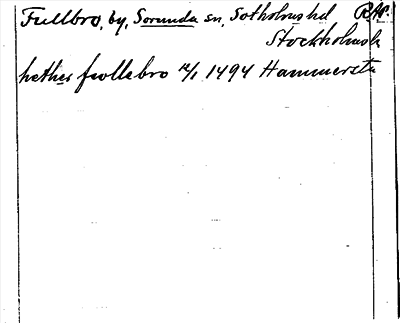 Fullbro, by, Sorunda sn, Sotholms hd
Stockholms l.
hether fwllebro 12/1 1494 Hammersta